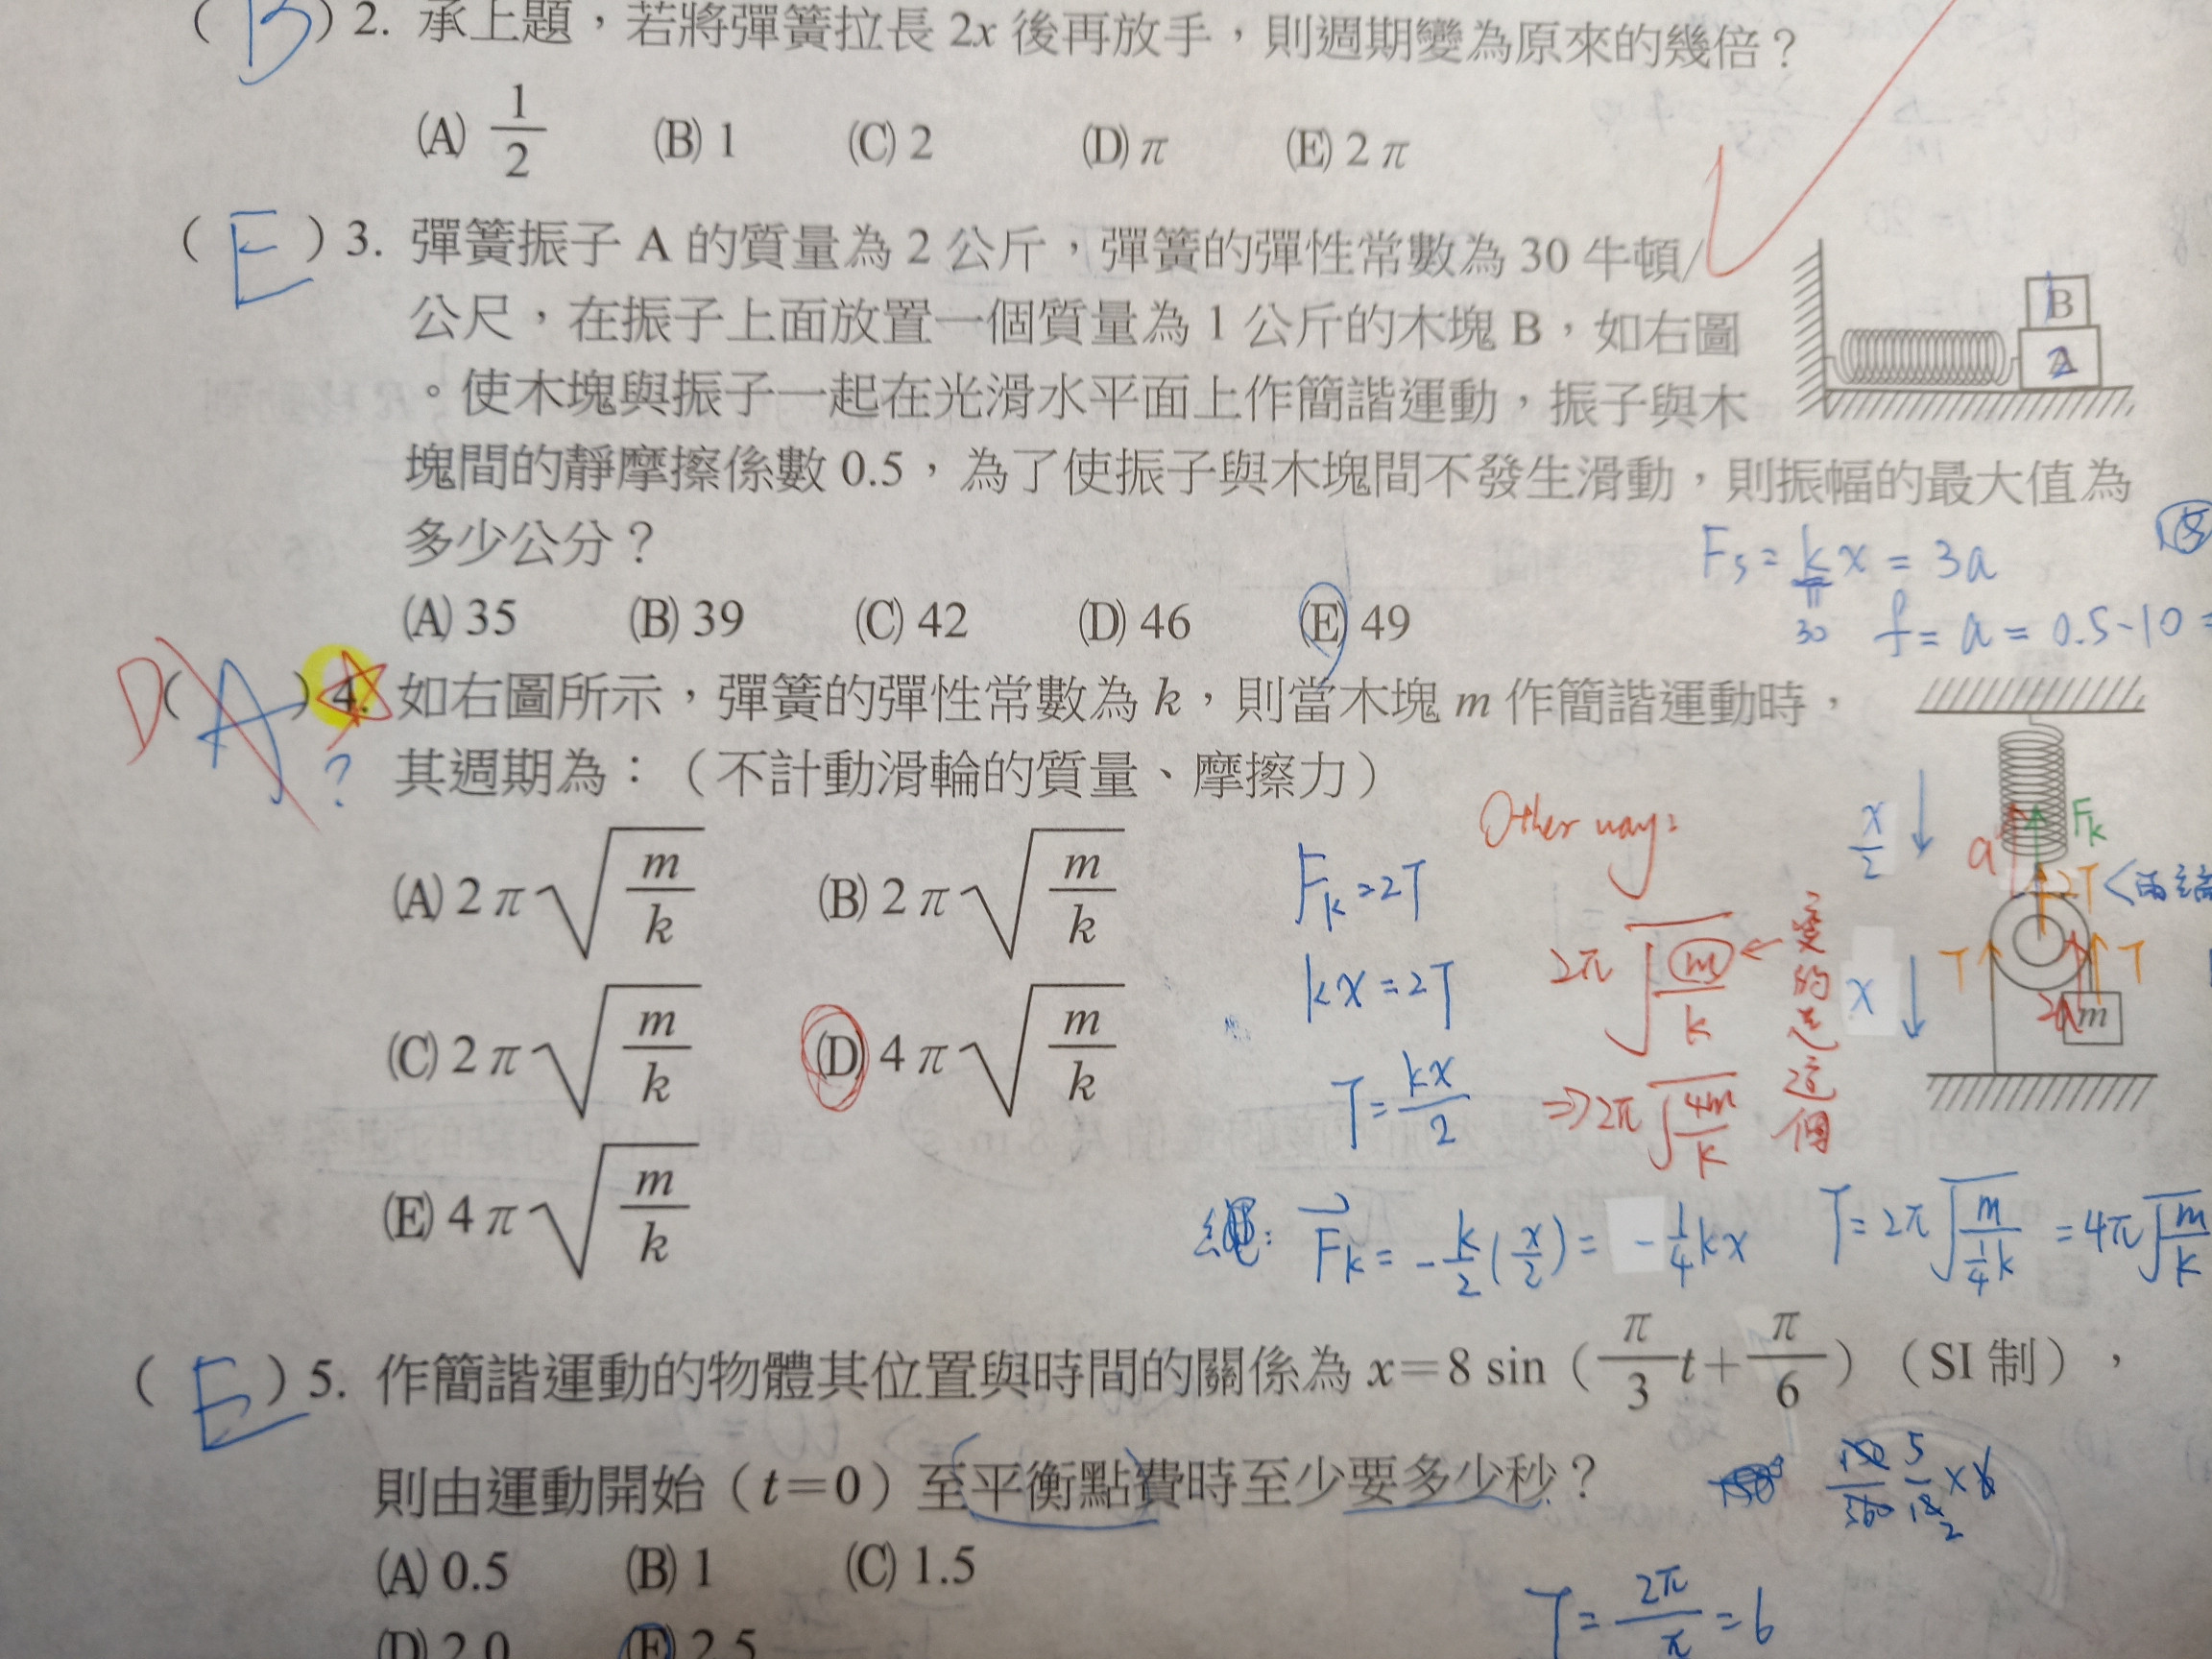 ( B ) 2. 承上題，若將彈簧拉長 2x 後再放手，則週期變為原來的幾倍？
(A) 1/2 (B) 1 (C) 2 (D) π (E) 2π
( E ) 3. 彈簧振子 A 的質量為 2 公斤，彈簧的彈性常數為 30 牛頓/
公尺，在振子上面放置一個質量為 1 公斤的木塊 B，如右圖
。使木塊與振子一起在光滑水平面上作簡諧運動，振子與木
塊間的靜摩擦係數 0.5，為了使振子與木塊間不發生滑動，則振幅的最大值為
多少公分？
B
2
Fs = kx = 3a
30
f = a = 0.5-10 =
(A) 35 (B) 39 (C) 42 (D) 46 (E) 49
D ( A ) 4. 如右圖所示，彈簧的彈性常數為 k，則當木塊 m 作簡諧運動時，
?
其週期為：（不計動滑輪的質量、摩擦力）
(A) 2π√(m/k) (B) 2π√(m/k)
(C) 2π√(m/k) (D) 4π√(m/k)
(E) 4π√(m/k)
Fk = 2T
kx = 2T
T = kx/2
Other way:
2π√(m/k) ← 變的是這個
⇒ 2π√(4m/k)
x/2 ↓
x ↓
Fk
a
2T <兩
T
T
2a
m
繩: Fk = -k/2(x/2) = -1/4kx
T = 2π√(m/(1/4k)) = 4π√(m/k)
( E ) 5. 作簡諧運動的物體其位置與時間的關係為 x=8 sin（π/3t+π/6）（SI 制），
則由運動開始（t=0）至平衡點費時至少要多少秒？
(A) 0.5 (B) 1 (C) 1.5
(D) 2.0 (E) 2.5
T = 2π/π = 6